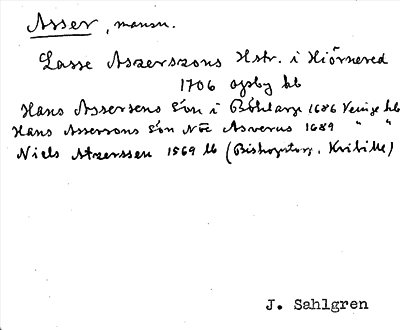 Asser, mansn.
Lasse Aszerszons Hstr. i Hiörnered
1706 Ogsby hb
Hans Assersens Son i Böhlarp 1686 Veinge hb
Hans Assersons Son Noe Asverus 1689 " "
Niels Atzerssen 1569 lb (Bishopstorp, Kvibille)
J. Sahlgren